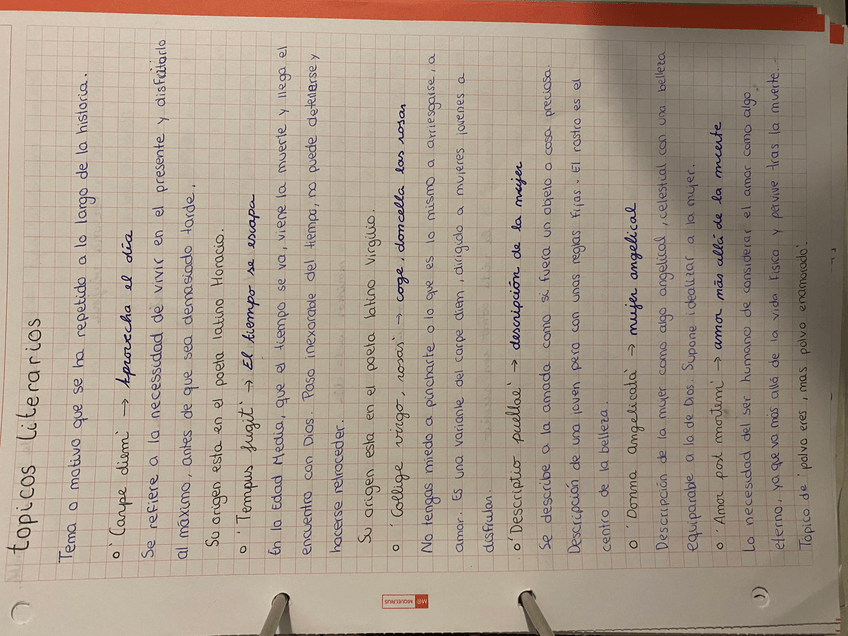 topicos literarios
Tema o motivo que se ha repetido a lo largo de la historia.
o 'Carpe diem' → Aprovecha el día
Se refiere a la necessidad de vivir en el presente y disfrutarlo
al máximo, antes de que sea demasiado tarde.
Su origen esta en el poeta latino Horacio.
o 'Tempus fugit' → El tiempo se escapa
En la Edad Media, que el tiempo se va, viene la muerte y llega el
encuentro con Dios. Paso inexorable del tiempo, no puede detenerse y
hacerse retroceder.
Su origen esta en el poeta latino Virgilio.
o 'Collige virgo, rosas' → coge, doncella las rosas
No tengas miedo a pincharte o lo que es lo mismo a arriesgarse, a
amar. Es una variante del carpe diem, dirigido a mujeres jovenes a
disfrutan.
o 'Descriptio puellae' → descripción de la mujer
Se describe a la amada como si fuera un objeto o cosa preciosa.
Descripción de una joven pero con unas reglas fijas. El rostro es el
centro de la belleza.
o 'Donna angelicata' → mujer angelical
Descripción de la mujer como algo angelical, celestial con una belleza
equiparable a la de Dios. Supone idealizar a la mujer.
o 'Amor post mortem' → amor más allá de la muerte
La necesidad del ser humano de considerar el amor como algo
eterno, ya que va más allá de la vida física y pervive tras la muerte.
Topico de 'polvo eres, mas polvo enamorado'.
MIQUELRIUS